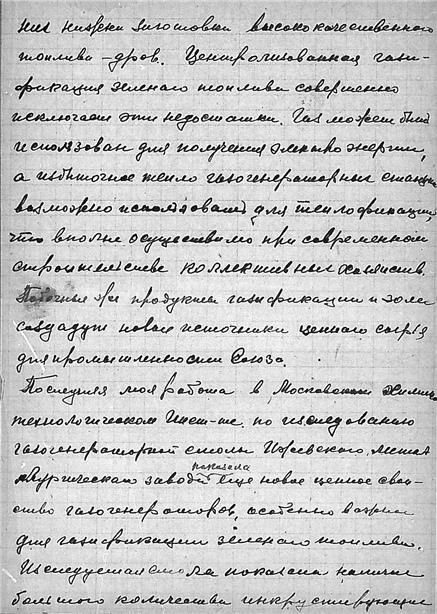 них низкги заготовки высококачественного
топлива – дров. Централизованная гази-
фикация зеленого топлива совершенно
исключает эти недостатки. Газ может быть
использован для получения электроэнергии,
а избыточное тепло газогенераторных станций
возможно использовать для теплофикации,
что вполне осуществимо при современном
строительстве коллективных хозяйств.
Побочные же продукты газификации и золы
создадут новые источники ценного сырья
для промышленности Союза.
Последняя моя работа в Московском Химико
технологическом Инст-те по исследованию
газогенераторной смолы Ижевского метал
лургического завода показала еще новое ценное свой-
ство газогенераторов, особенно важное
для газификации зеленого топлива.
Исследуемая смола показала наличие
большого количества инкрустирующих